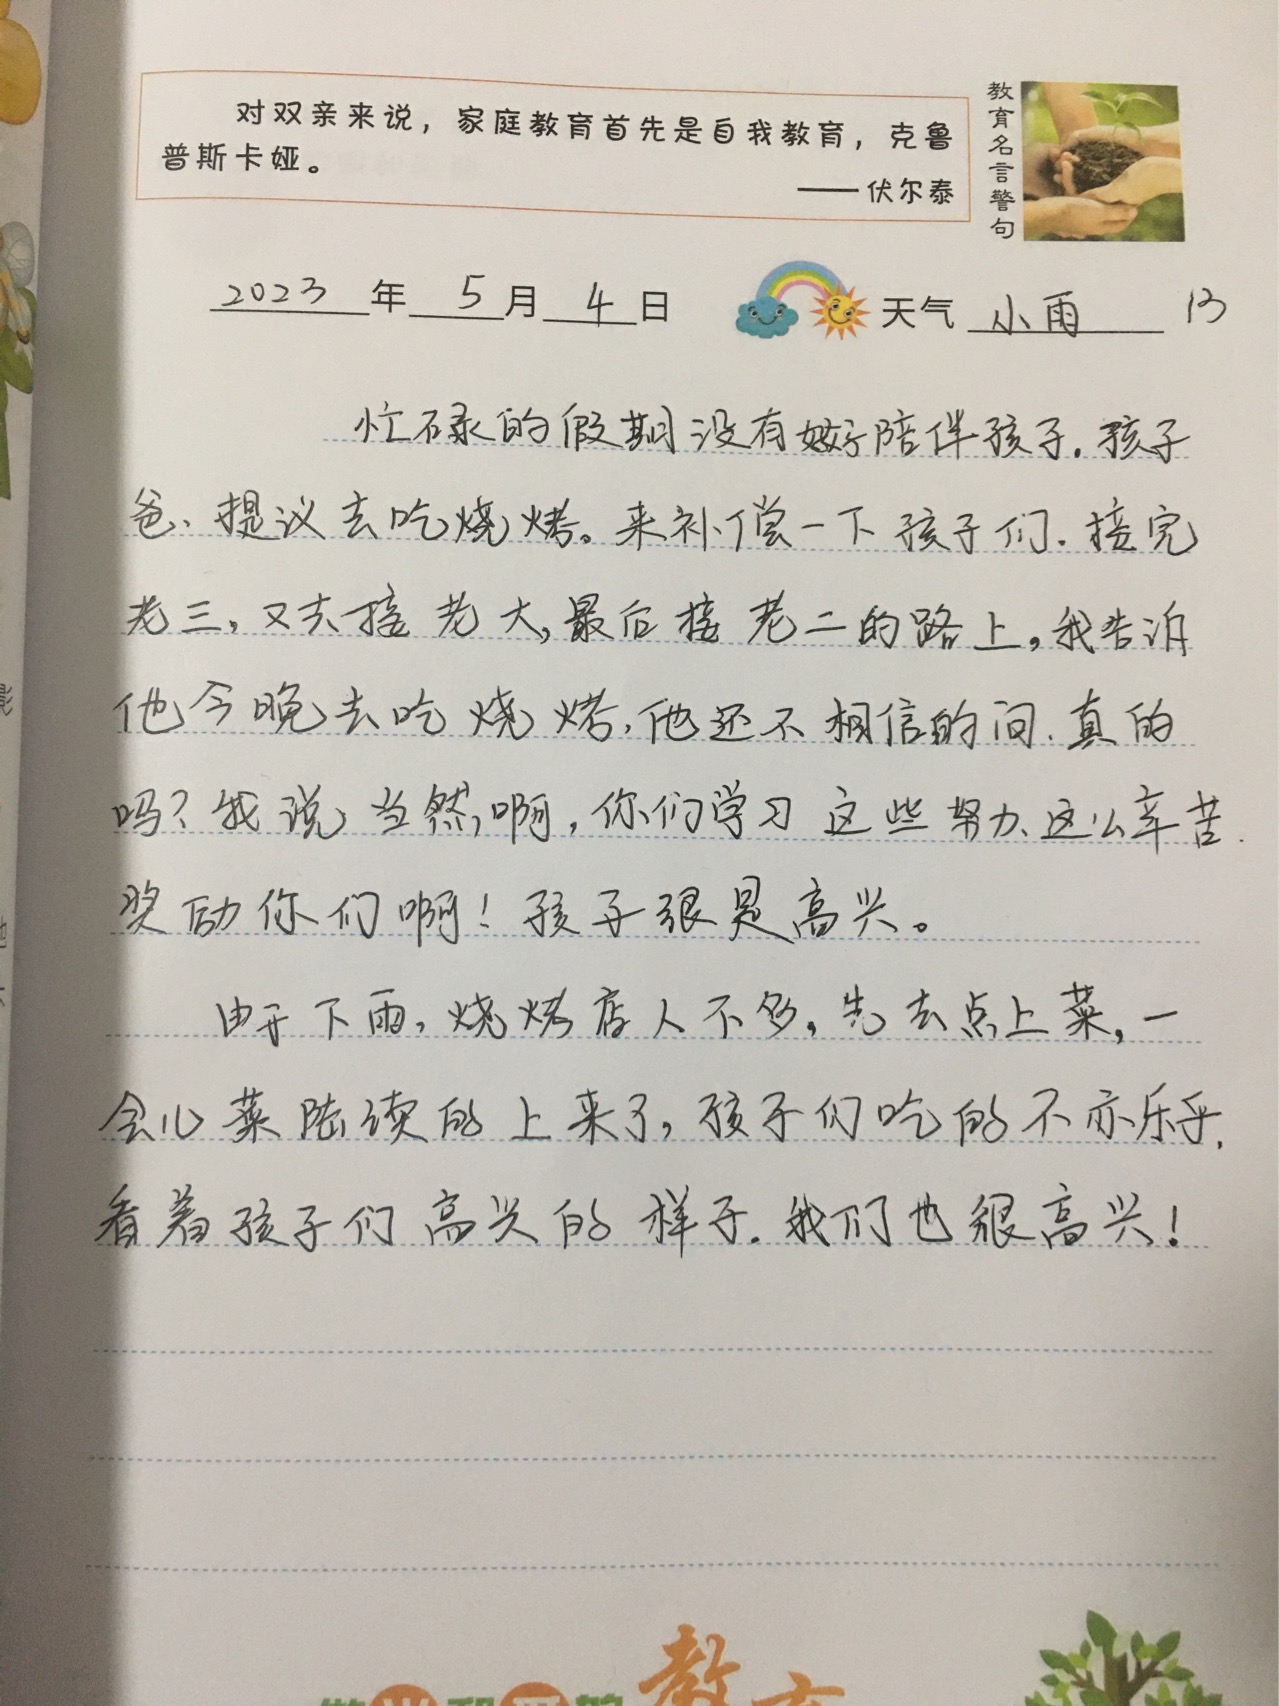 对双亲来说，家庭教育首先是自我教育，克鲁
普斯卡娅。
——伏尔泰
教育名言警句
2023年5月4日 天气 小雨 13
忙碌的假期没有好好陪伴孩子.孩子
爸、提议去吃烧烤。来补偿一下孩子们.接完
老三,又去接老大,最后接老二的路上,我告诉
他今晚去吃烧烤,他还不相信的问.真的
吗?我说当然啊,你们学习这些努力、这么辛苦.
奖励你们啊!孩子很是高兴。
由于下雨,烧烤店人不多,先去点上菜,一
会儿菜陆续的上来了,孩子们吃的不亦乐乎,
看着孩子们高兴的样子.我们也很高兴!
教育